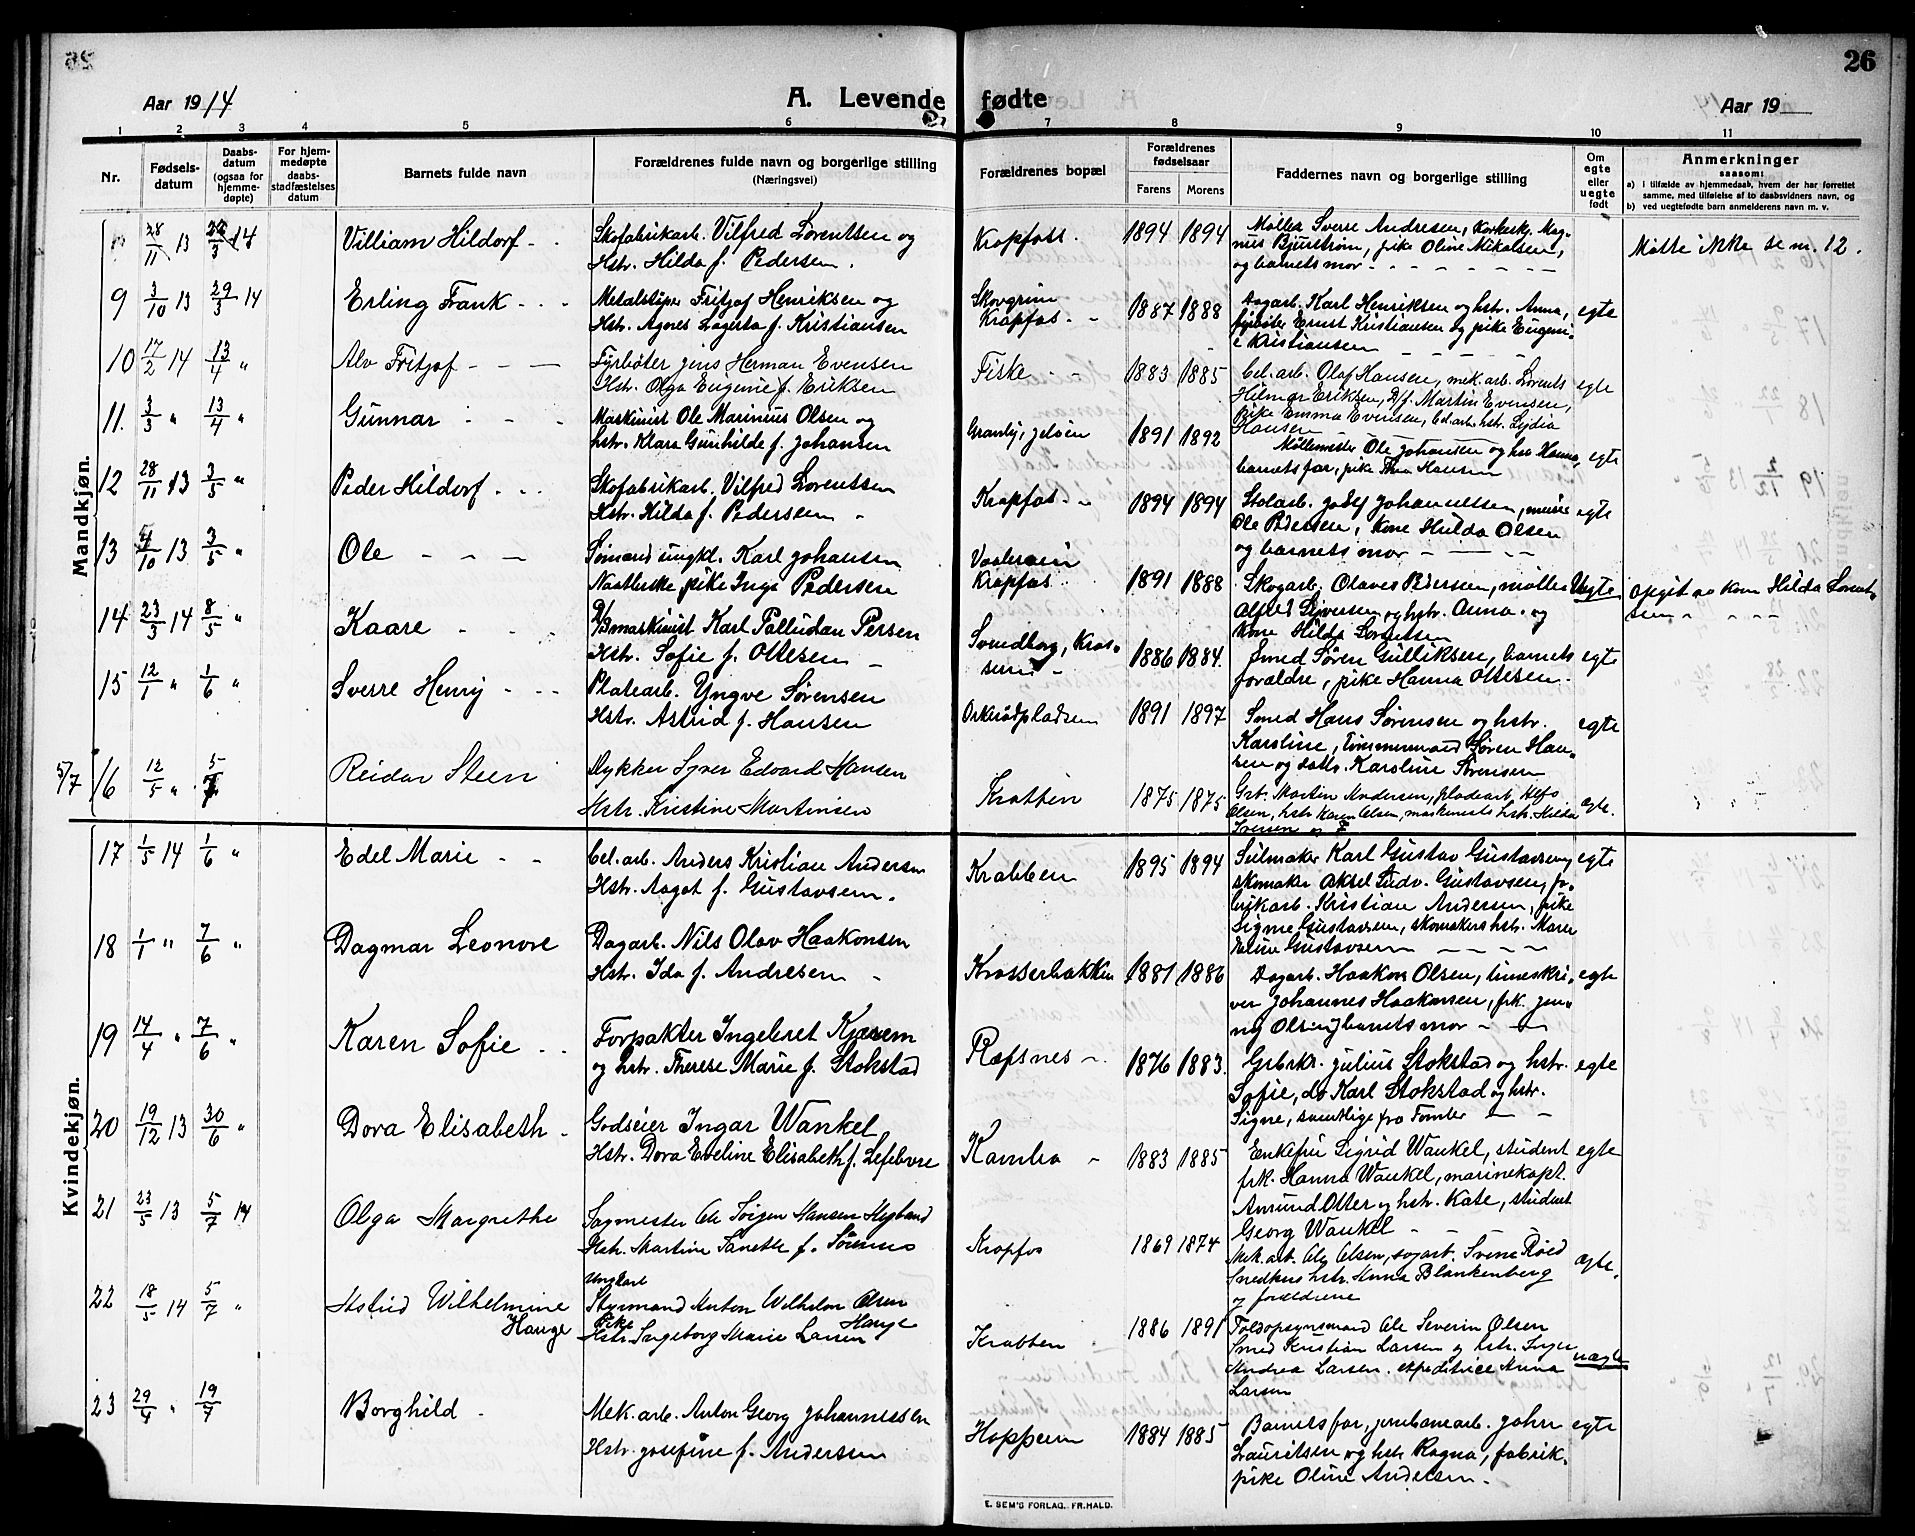 26
Aar 1914
A. Levende fødte
Aar 19
1 2 3 4 5 6 7 8 9 10 11
Nr.
Fødsels-
datum
Daabs-
datum
(ogsaa for
hjemme-
døpte)
For hjem-
medøpte
daabs-
stadfæstelses
datum
Barnets fulde navn
Forældrenes fulde navn og borgerlige stilling
(Næringsvei)
Forældrenes bopæl
Forældrenes
fødselsaar
Farens Morens
Faddernes navn og borgerlige stilling
Om
egte
eller
uegte
født
Anmerkninger
saasom:
a) i tilfælde av hjemmedaab, hvem der har forrettet
samme, med tilføielse af to daabsvidners navn, og
b) ved uegtefødte barn anmelderens navn m. v.
Mandkjøn.
28/11 13 22/3 14 Villiam Hildorf
Skofabrikarb. Vilfred Lorentsen og
Hstr. Hilda f. Pedersen.
Kropfoss. 1894 1894
Møller Sverre Andresen, Korkeskj. Mag-
nus Bjurstrøm, pike Oline Mikalsen,
og barnets mor
Møtte ikke se nr. 12.
9 3/10 13 29/3 14 Erling Frank
Metalstøper Fritjof Henriksen og
Hstr. Agnes Lagerta f. Kristiansen
Skovgrim
Kropfos 1887 1888
Dagarb. Karl Henriksen og hstr. Anna,
fyrbøter Ernst Kristiansen og pike Eugeni-
e Kristiansen
egte
10 17/2 14 13/4 " Alv Fritjof
Fyrbøter Jens Herman Evensen
Hstr. Olga Eugenie f. Eriksen
Fiske 1883 1885
Cel. arb. Olaf Hansen, mek. arb. Lorents
Hilmar Eriksen, D/f. Martin Evensen,
pike Emma Evensen, Cel. arb. hstr. Lydia
Hansen
egte
11. 3/3 " 13/4 " Gunnar
Maskinist Ole Marinius Olsen og
hstr. Klara Gunhilde f. Johansen
Granly, Jeløen 1891 1892
Møllemester Ole Johansen og hstr. Hanna,
barnets far, pike Thea Hansen
egte
12 28/11 13 3/5 " Peder Hildorf
Skofabrikarb. Vilfred Lorentsen
Hstr. Hilda f. Pedersen
Kropfos 1894 1894
Stolarb. Josef Johannessen, murer
Ole Pedersen, kone Hulda Olsen
og barnets mor
egte
13 4/10 13 3/5 " Ole
Sømand ungkl. Karl Johansen
Naatleske, pike Inga Pedersen
Vaaleraen
Kropfos 1891 1888
Skogarb. Olaves Pedersen, møller
Alfred Syversen og hstr. Anna og
kone Hilda Lorentsen
Uegte
Opgit av kone Hilda Lorent-
sen
14 23/3 14 8/5 " Kaare
D/Bmaskinist Karl Palludan Persen
Hstr. Sofie f. Ottesen
Svendborg, Kros-
sern 1886 1884.
Smed Søren Gulliksen, barnets
forældre, pike Hanna Ottesen.
egte
15 12/1 " 1/6 " Sverre Henry
Platearb. Yngve Sørensen
Hstr. Astrid f. Hansen
Orkerødpladsen 1891 1897
Smed Hans Sørensen og hstr.
Karoline, tømmermand Søren Han-
sen og datter Karoline Sørensen
egte
5/7 16 12/5 " 5/7 Reidar Steen
Dykker Syver Edvard Hansen
Hstr. Kristine Martinsen
Krabben 1875 1875
Grb. Martin Andersen, pladearb. Alfs
Olsen, hstr. Karen Olsen, maskinists hstr. Hilda
Iversen og F
egte.
Kvindekjøn.
17 1/5 14 1/6 " Edel Marie
Cel. arb. Anders Kristian Andersen
Hstr. Aagot f. Gustavsen.
Krabben 1895 1894
Seilmaker Karl Gustav Gustavsen,
skomaker Aksel Ludv. Gustavsen, fa-
brikarb. Kristian Andersen, pike
Signe Gustavsen, skomakers hstr. Maren
Eline Gustavsen
egte
18 1/1 " 7/6 " Dagmar Leonore
Dagarb. Nils Olav Haakonsen
Hstr. Ida f. Andresen
Krosserbakken 1881 1886
Dagarb. Haakon Olsen, timeskri-
ver Johannes Haakonsen, frk. Jen-
ny Olsen, barnets mor
egte
19 14/4 " 7/6 " Karen Sofie
Forpakter Ingebret Kjærem
og hstr. Therese Marie f. Stokstad
Refsnes 1876 1883.
Grbrkr. Julius Stokstad og hstr.
Sofie, do Karl Stokstad og hstr.
Signe, samtlige fra Tomter
egte
20 19/12 13 30/6 " Dora Elisabeth
Godseier Ingar Wankel
Hstr. Dora Eveline Elisabeth f. Lefebvre
Kambo 1883 1885
Enkefru Sigrid Wankel, student
frk. Hanna Wankel, marinekapt.
Amund Otter og hstr. Kate, student
Georg Wankel
egte
21 23/5 13 5/7 14 Olga Margrethe
Sagmester Ole Jørgen Hansen Nygaard
Hstr. Martine Sanette f. Sørensen
Kropfos 1869 1874
Mek. arb. Ole Olsen, sagarb. Svene Røed
Snedkers hstr. Anna Blankenberg
og forældrene
egte.
22 18/5 14 5/7 " Astrid Wilhelmine
Hauge
Ungkarl
Styrmand Anton Wilhelm Olsen
Pike Hauge
Hstr. Ingeborg Marie Larsen
Krabben 1886 1891
Toldopsynsmand Ole Severin Olsen
Smed Kristian Larsen og hstr. Inger
Andrea Larsen. ekspeditrice Anna
Larsen
uægte
23 29/4 " 19/7 Borghild
Mek. arb. Anton Georg Johannessen
Hstr. Josefine f. Andersen
Hoppern 1884 1885
Barnets far, jernbanearb. John
Lauritsen og hstr. Ragna, fabrik-
pike Oline Andersen
egte
E. SEM'S FORLAG. FR.HALD.